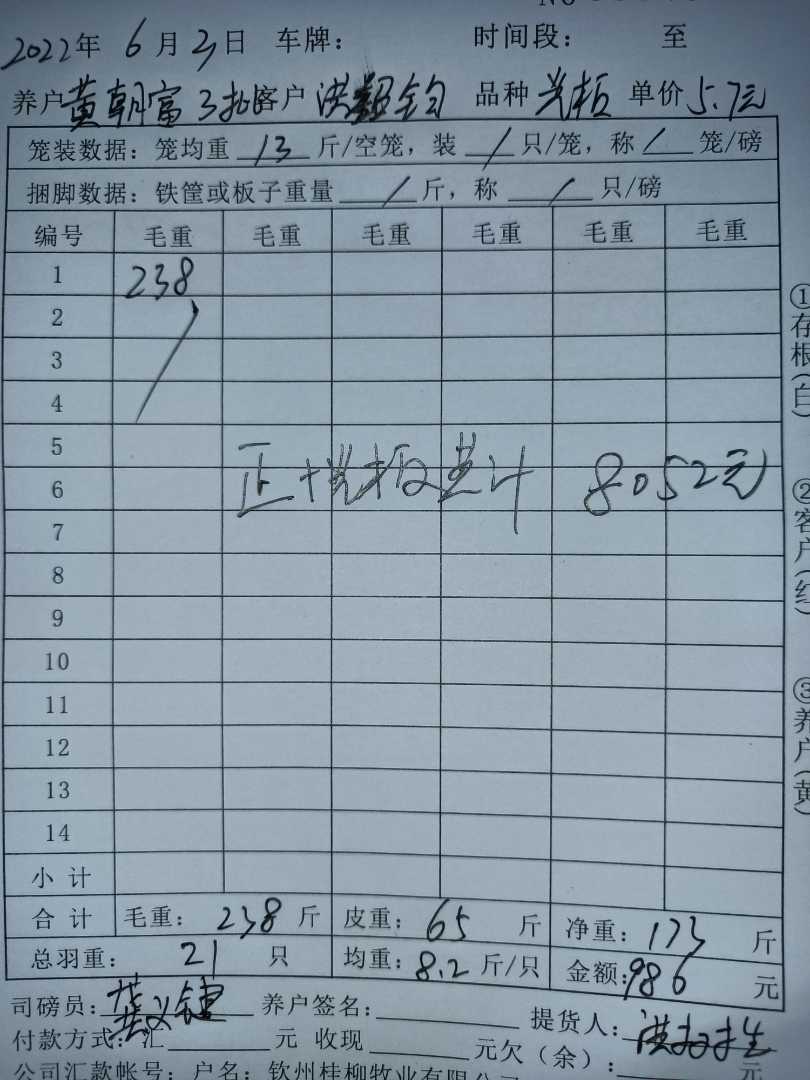 2022年 6月3日 车牌： 时间段： 至
养户黄朝富3批客户洪超钧 品种光板 单价5.7元
笼装数据：笼均重 13 斤/空笼，装 / 只/笼，称 / 笼/磅
捆脚数据：铁筐或板子重量 / 斤，称 / 只/磅
编号 毛重 毛重 毛重 毛重 毛重 毛重
1 238
2
3
4
5
6
正+光板共计 8052元
7
8
9
10
11
12
13
14
小计
合计 毛重：238斤 皮重：65斤 净重：173斤
总羽重：21只 均重：8.2斤/只 金额：986元
司磅员： 养户签名： 提货人：
付款方式：汇 元 收现 元欠（余）： 元
公司汇款帐号：户名：钦州桂柳牧业有限公司
①存根（白） ②客户（红） ③养户（黄）